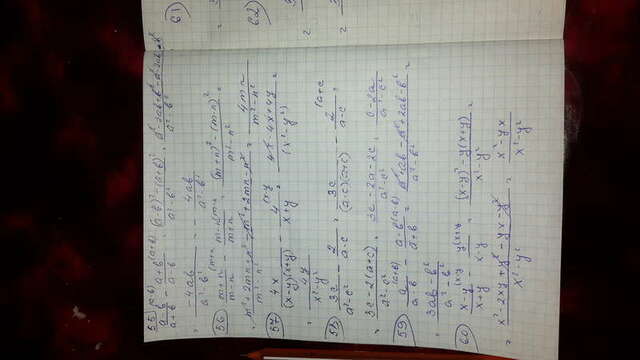 55) a-b/a+b - a+b/a-b = (a-b)²-(a+b)²/a²-b² = a²-2ab+b²-a²-2ab-b²/a²-b²
= -4ab/a²-b² = - 4ab/a²-b²
56) m+n/m-n - m-n/m+n = (m+n)²-(m-n)²/m²-n² =
= m²+2mn+n²-m²+2mn-n²/m²-n² = 4mn/m²-n²
57) 4x/(x-y)(x+y) - 4/x+y = 4x-4x+4y/(x²-y²) =
4y/x²-y²
58) 3c/a²-c² - 2/a-c = 3c/(a-c)(a+c) - 2/a-c (a+c
3c-2(a+c)/a²-c² = 3c-2a-2c/a²-c² = c-2a/a²-c²
59) a/a-b - a-b/a+b = a²+ab-a²+2ab-b²/a²-b² =
3ab-b²/a²-b²
60) x-y/x+y - y/x-y = (x-y)²-y(x+y)/x²-y²
= x²-2xy+y²-yx-y²/x²-y² = x²-yx/x²-y²
61)
=
62)
=
=